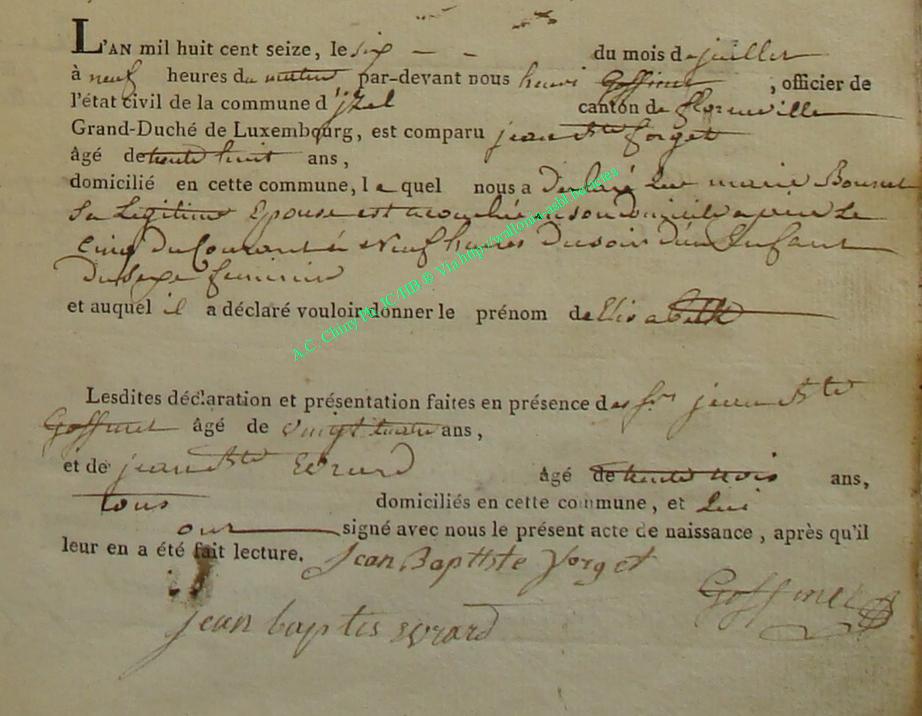 L'AN mil huit cent seize, le six du mois de juillet
à neuf heures du matin par-devant nous henri Goffinet, officier de
l'état civil de la commune d'jzel canton de florenville
Grand-Duché de Luxembourg, est comparu jean Bte forget
âgé de trente huit ans,
domicilié en cette commune, le quel nous a Declaré que marie
Sa Legitime Epouse est accouchée en son domicile Le
Cinq du Courant à Neuf heures Du soir D'un Enfant
Du Sexe feminin
et auquel il a déclaré vouloir donner le prénom de Elisabeth
Lesdites déclaration et présentation faites en présence des jean Bte
Goffinet âgé de vingt ans,
et de jean Bte Evrard âgé de trente trois ans,
tous domiciliés en cette commune, et
ont signé avec nous le présent acte de naissance, après qu'il
leur en a été fait lecture.
Jean Baptiste forget
Goffinet
jean baptis evrard
A.C. Chiny Ph JC/HB © Via http://wallonia-asbl.be/actes